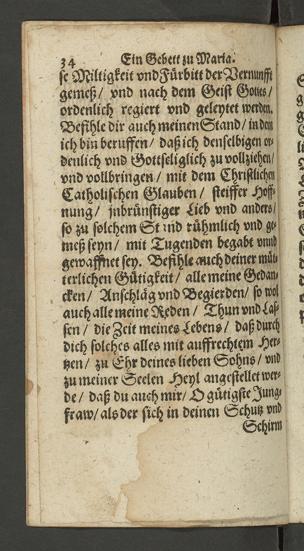 34 Ein Gebett zu Maria.
se Miltigkeit vnd Fürbitt der Vernunfft
gemeß / vnd nach dem Geist Gottes /
ordenlich regiert vnd geleytet werden.
Befihle dir auch meinen Stand / in dem
ich bin beruffen / daß ich denselbigen or-
denlich vnd Gottseliglich zu vollziehen /
vnd vollbringen / mit dem Christlichen
Catholischen Glauben / steiffer Hoff-
nung / jnbrünstiger Lieb vnd anders /
so zu solchem Stand rühmlich vnd ge-
meß seyn / mit Tugenden begabt vnnd
gewaffnet sey. Befihle auch deiner müt-
terlichen Gütigkeit / alle meine Gedan-
cken / Anschläg vnd Begierden / so wol
auch alle meine Reden / Thun vnd Las-
sen / die Zeit meines Lebens / daß durch
dich solches alles mit auffrechtem Her-
tzen / zu Ehr deines lieben Sohns / vnd
zu meiner Seelen Heyl angestellet wer-
de / daß du auch mir / O gütigste Jung-
fraw / als der sich in deinen Schutz vnd
Schirm